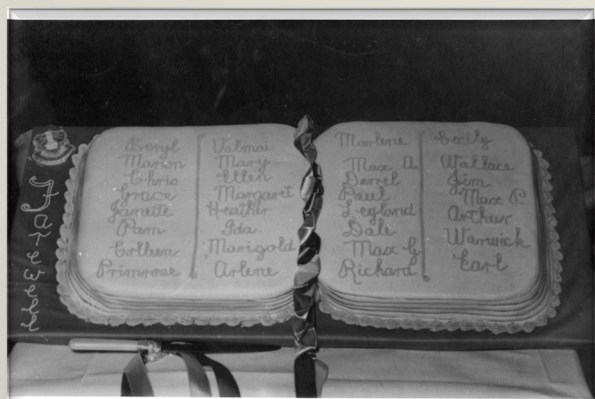 Beryl
Marion
Chris
Grace
Janette
Pam
Colleen
Primrose
Valmai
Mary
Ellen
Margaret
Heather
Ida
Marigold
Arlene
Marlene
Max A
Darrel
Paul
Leyland
Dale
Max G
Richard
Cecily
Wallace
Jim
Max P
Arthur
Warwick
Carl